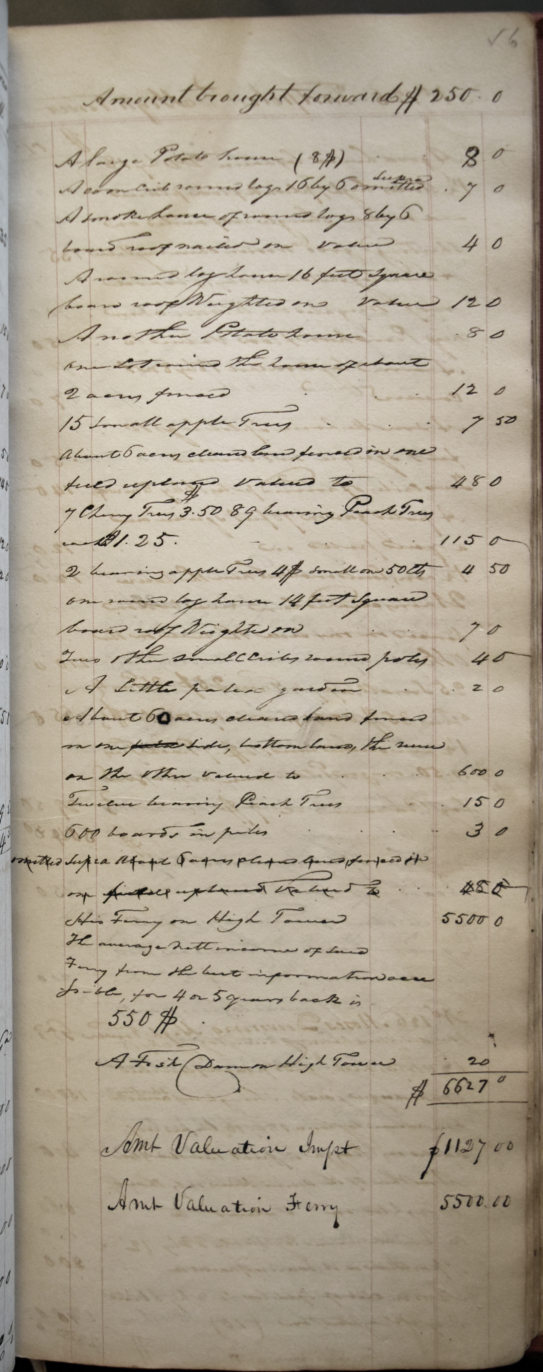 56
Amount brought forward $ 250 0
A large Potato house (8$) 8 0
supra
A corn Crib round logs 16 by 6 omitted 7 0
A smoke house of round logs 8 by 6
board roof nailed on Value 4 0
A round log house 16 feet square
board roof Weighted on Value 12 0
Another Potato house 8 0
one Lot round the house of about
2 acres fenced 12 0
15 Small apple Trees 7 50
About 6 acres cleared land fenced in one
field upland Valued to 48 0
7 Cherry Trees $3.50 89 bearing Peach Trees
each $1.25. 115 0
2 bearing apple Trees 4$ small on 50cts 4 50
one round log house 14 feet Square
board roof Weighted on 7 0
Two other small Cribs round poles 4 0
A Little garden 2 0
About 60 acres cleared land fenced
on one side, bottom land, the river
on the other Valued to 600 0
Twelve bearing Peach Trees 15 0
600 boards in piles 3 0
omitted supra About 6 acres cleared land fenced in
one field upland Valued to 48 0
His Ferry on High Tower 5500 0
The average nett income of said
Ferry from the best information
for 4 or 5 years back is
550 $.
A Fish Dam on High Tower 20
$ 6627 0
Amt Valuation Impt $1127 00
Amt Valuation Ferry 5500.00